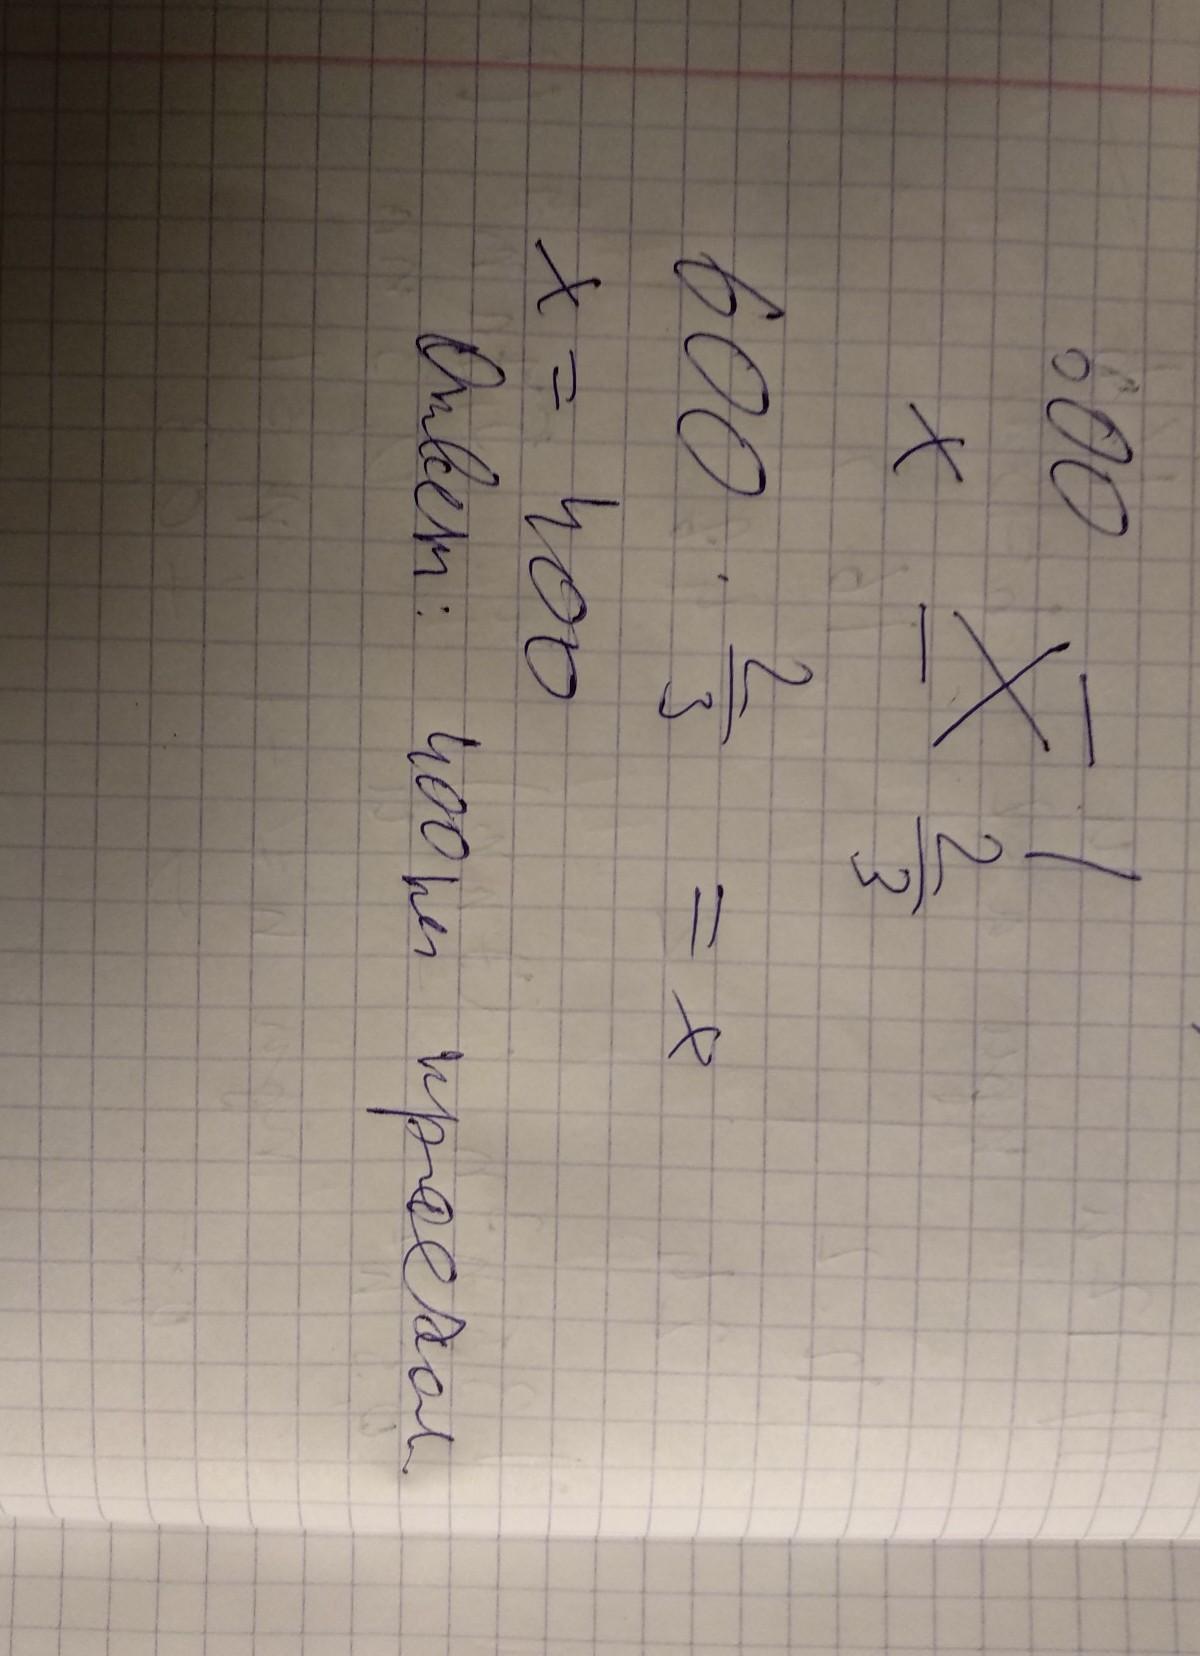 600 — 1
x — 2/3
600 · 2/3 = x
x = 400
Ответ: 400км проехал.